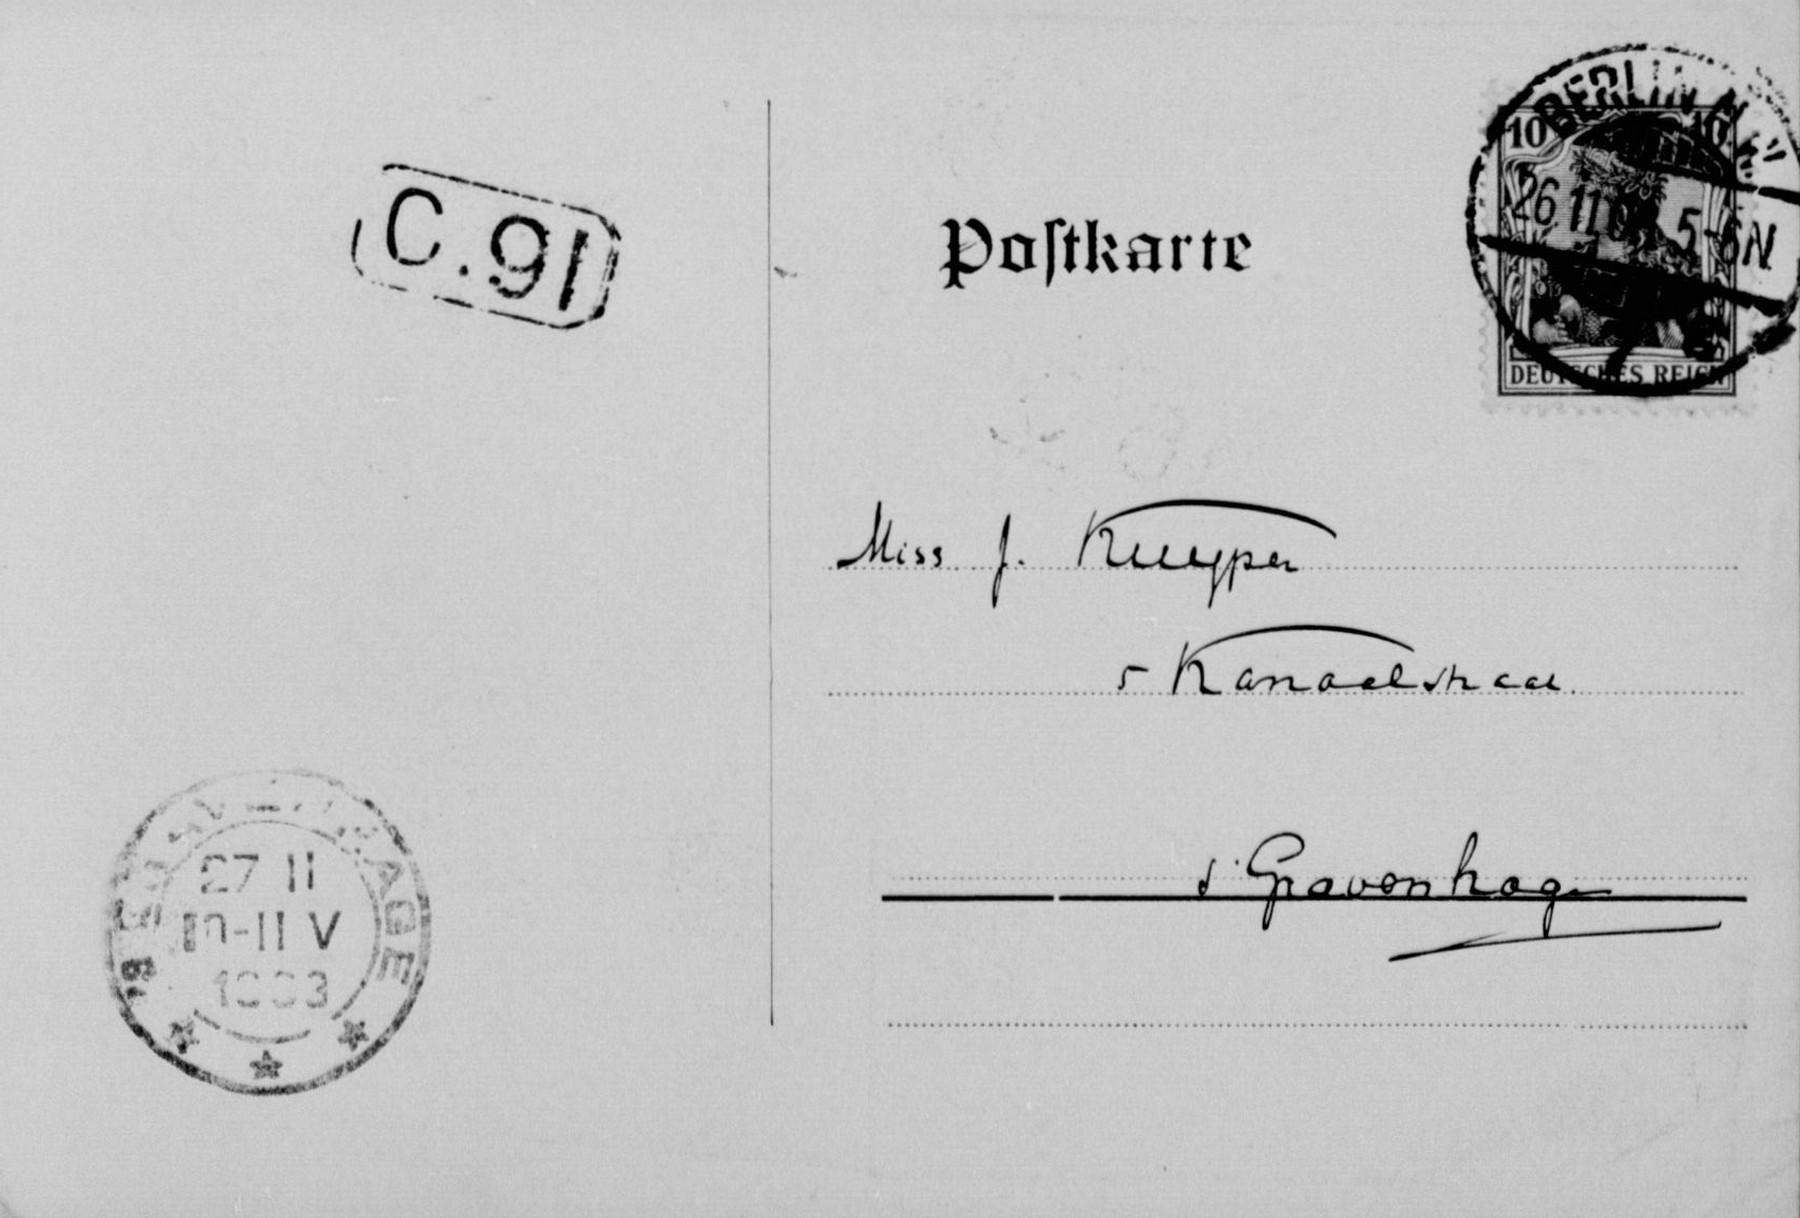 C.91
Postkarte
BERLIN
10
26.11.0
5-6N
DEUTSCHES REICH
Miss J. Kuyper
5 Kanaalstraat
s' Gravenhage
27 11
10-11 V
★ ★ ★